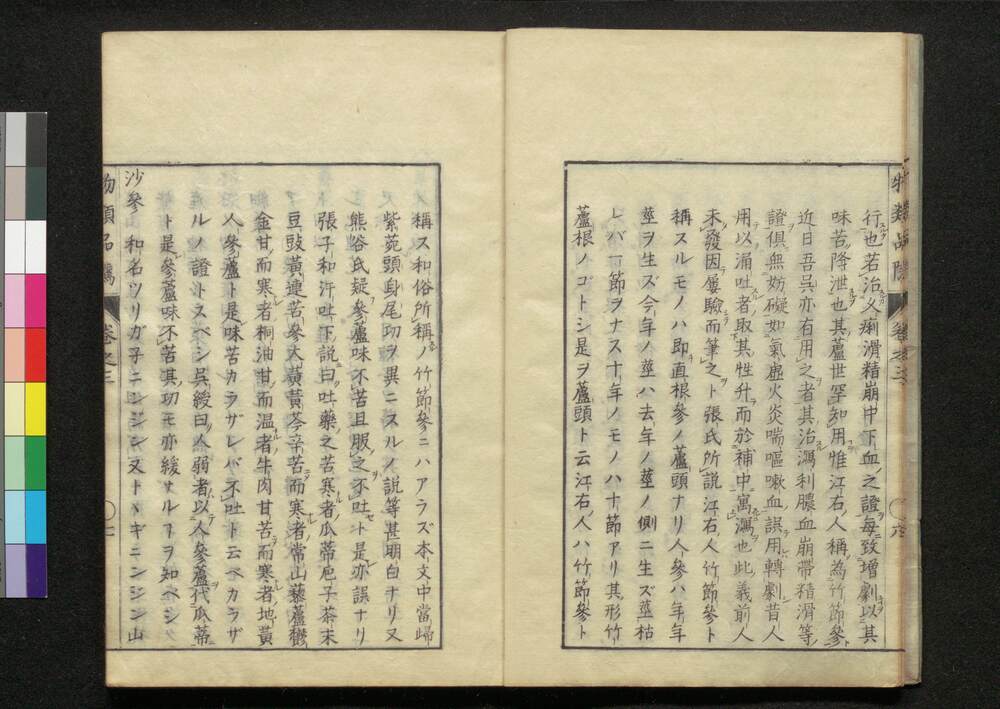 物類品隲
卷之三
六
行也若治久痢滑精崩中下血之證每致增劇以其
味苦降泄也其蘆世罕知用惟江右人稱為竹節參
近日吾吳亦有用之者其治瀉利膿血崩帶精滑等
證俱無妨礙如氣虛火炎喘嘔嗽血誤用轉劇昔人
用以涌吐者取其性升而於補中寓瀉也此義前人
未發因屢驗而筆之ト張氏所說江右人竹節參ト
稱スルモノハ即直根參ノ蘆頭ナリ人參ハ年年
莖ヲ生ズ今年ノ莖ハ去年ノ莖ノ側ニ生ズ莖枯
レバ一節ヲナス十年ノモノハ十節アリ其形竹
蘆根ノゴトシ是ヲ蘆頭ト云江右人ハ竹節參ト
稱ス和俗所稱ノ竹節參ニハアラズ本文中當歸
紫菀頭身尾功ヲ異ニスルノ說等甚明白ナリ又
熊谷氏疑參蘆味不苦且服之不吐ト是亦誤ナリ
張子和汗吐下說曰吐藥之苦寒者瓜蒂梔子茶末
豆豉黃連苦參大黃黃芩辛苦而寒者常山藜蘆鬱
金甘而寒者桐油甘而溫者牛肉甘苦而寒者地黃
人參蘆ト是味苦カラザレバ不吐ト云ベカラザ
ルノ證トスベシ吳綬曰人弱者以人參蘆代瓜蒂
ト是參蘆味不苦其功モ亦緩ナルヿヲ知ベシ
沙參 和名ツリガ子ニンジン又トヽギニンジン山
物類品隲
卷之三
七